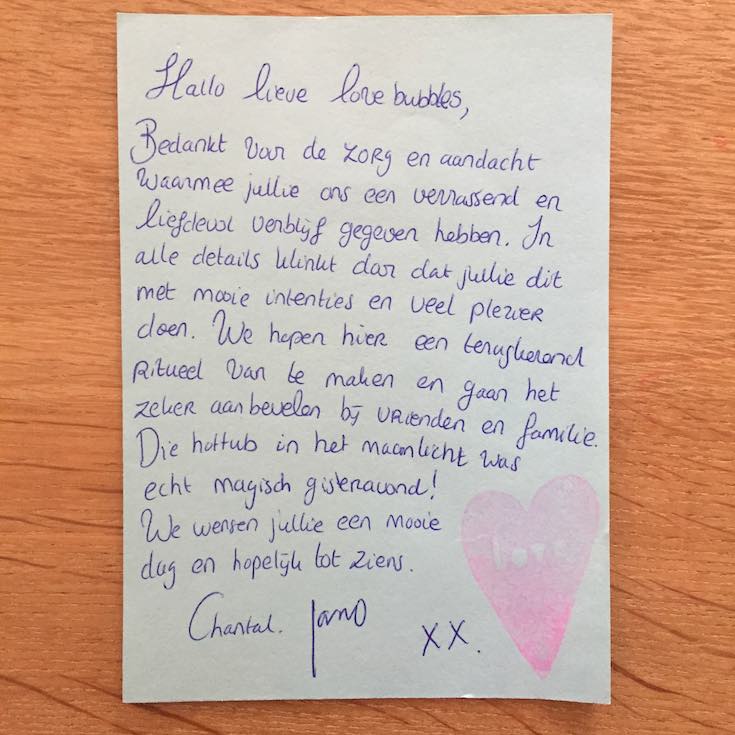 Hallo lieve lovebubbles,
Bedankt voor de zorg en aandacht
waarmee jullie ons een verrassend en
liefdevol verblijf gegeven hebben. In
alle details klinkt door dat jullie dit
met mooie intenties en veel plezier
doen. We hopen hier een terugkerend
ritueel van te maken en gaan het
zeker aanbevelen bij vrienden en familie.
Die hottub in het maanlicht was
echt magisch gisteravond!
We wensen jullie een mooie
dag en hopelijk tot ziens.
Chantal.
xx.
love